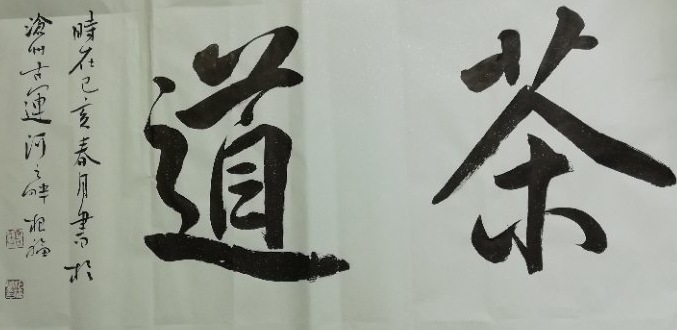 茶道
時在己亥春月書於
滄州古運河之畔